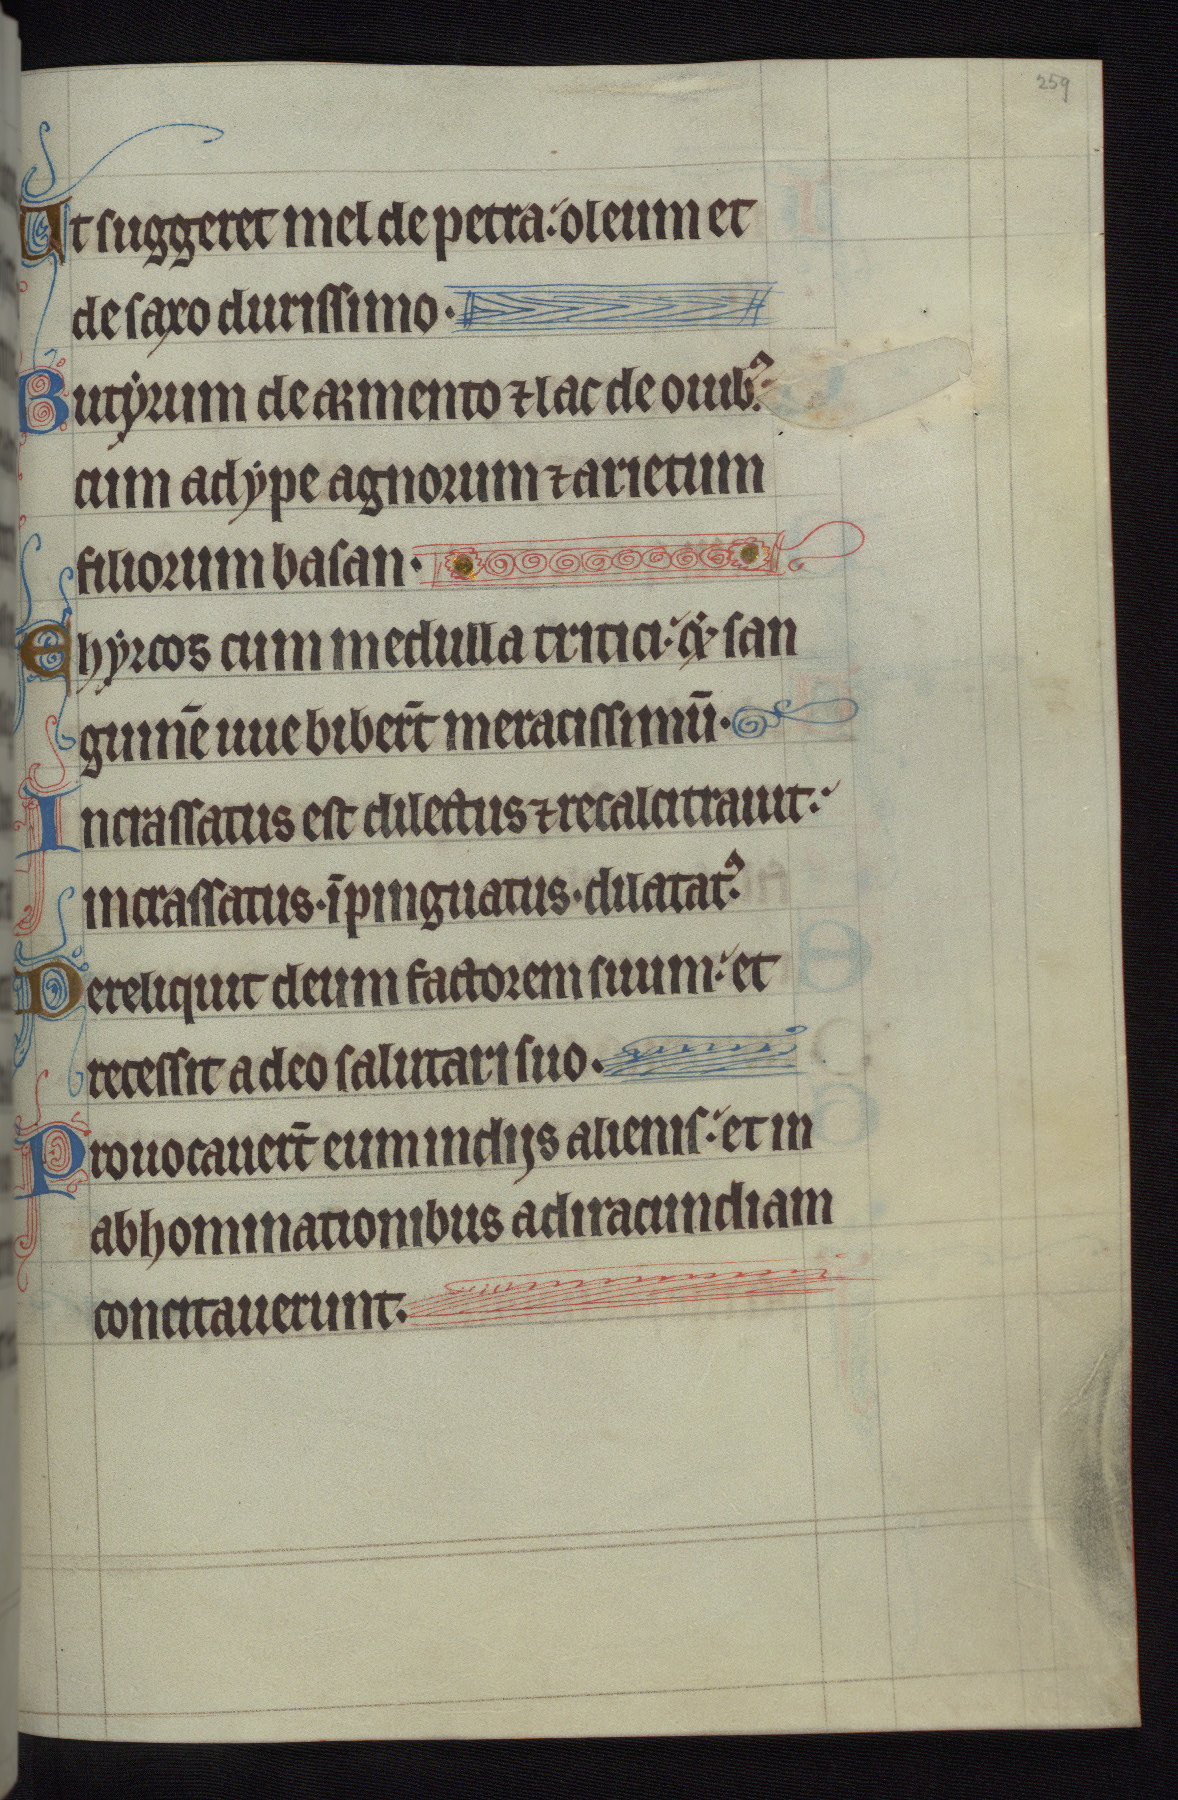 259
Ut suggeret mel de petra: oleum et
de saxo durissimo.
Butẏrum de armento ⁊ lac de ouibꝫ:
cum adẏpe agnorum ⁊ arietum
filiorum basan.
Et hẏrcos cum medulla tritici: ⁊ san
guinē uue biber̄t meracissimū.
Incrassatus est dilectus ⁊ recalcitrauit:
incrassatus. īpinguatus. dilatat᷒:
Dereliquit deum factorem suum: et
recessit a deo salutari suo.
Prouocauer̄t eum in dijs alienis: et in
abhominationibus ad iracundiam
concitauerunt.